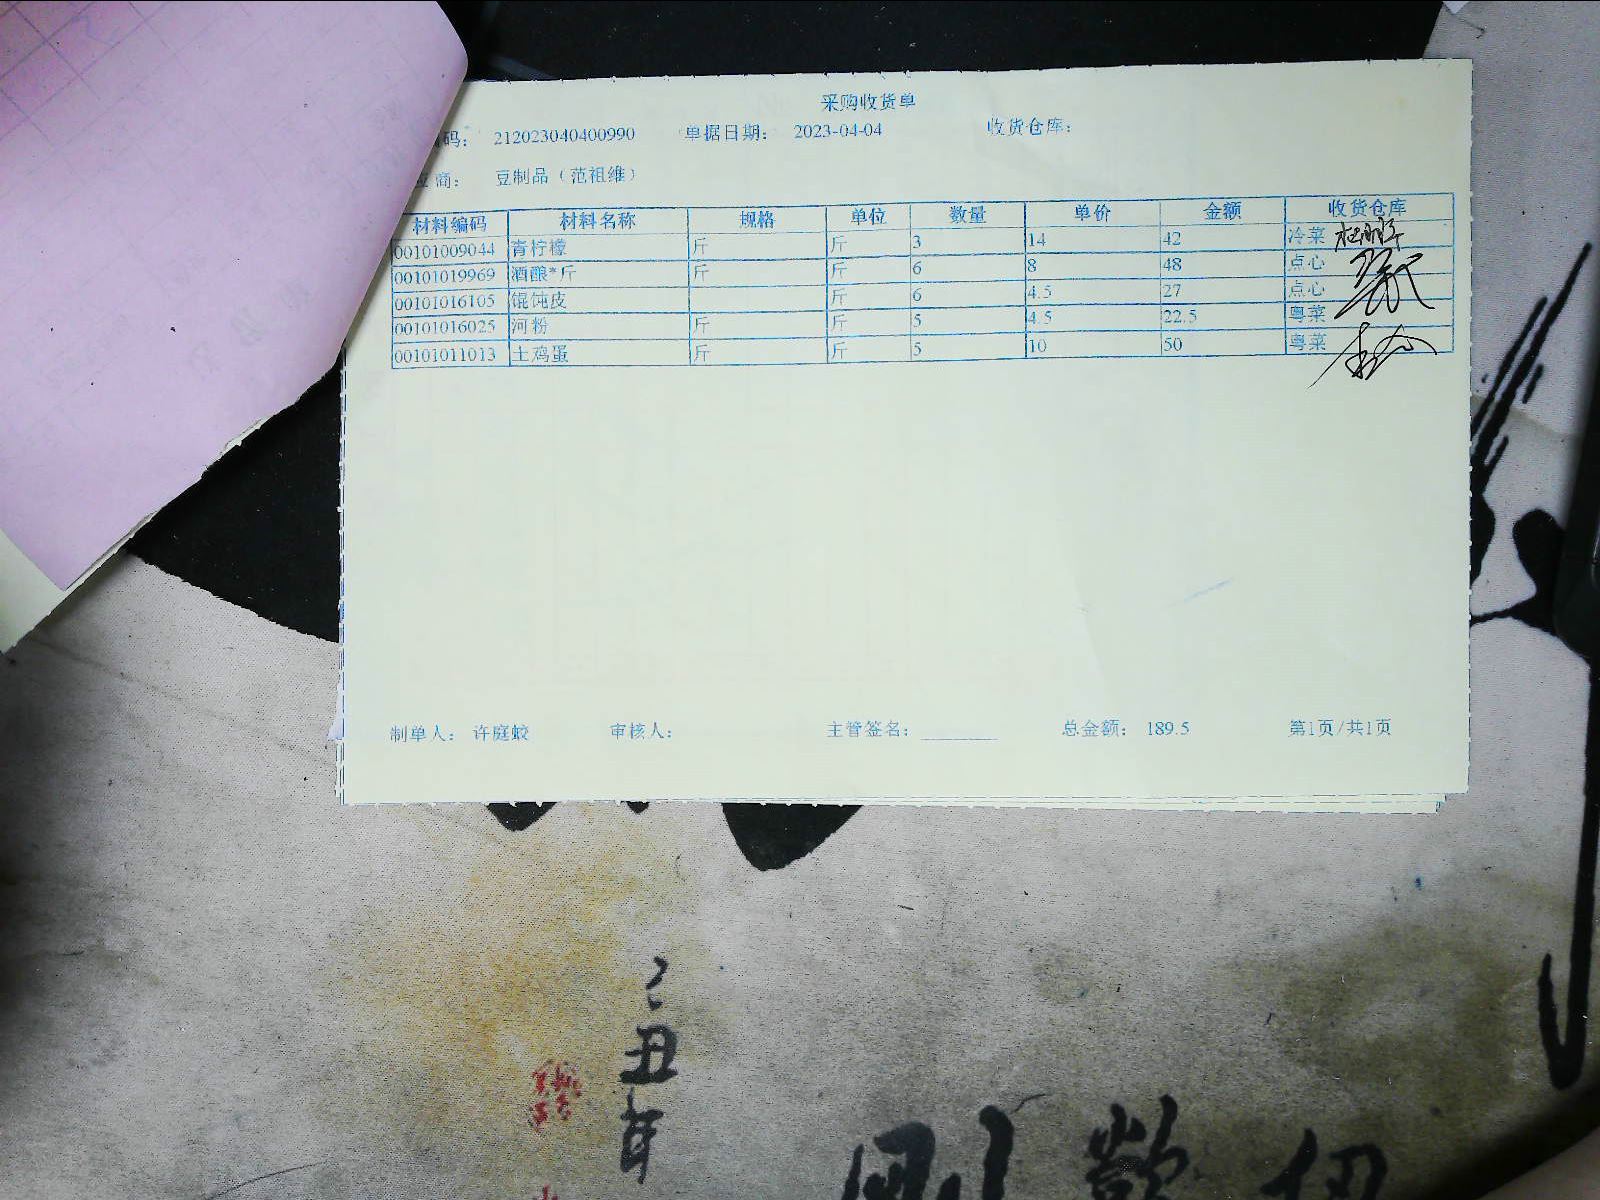 采购收货单
码： 212023040400990 单据日期： 2023-04-04 收货仓库：
应商： 豆制品（范祖维）
材料编码 材料名称 规格 单位 数量 单价 金额 收货仓库
00101009044 青柠檬 斤 斤 3 14 42 冷菜
00101019969 酒酿*斤 斤 斤 6 8 48 点心
00101016105 馄饨皮 斤 6 4.5 27 点心
00101016025 河粉 斤 斤 5 4.5 22.5 粤菜
00101011013 土鸡蛋 斤 斤 5 10 50 粤菜
制单人： 许庭蛟 审核人： 主管签名： 总金额： 189.5 第1页/共1页
丑年